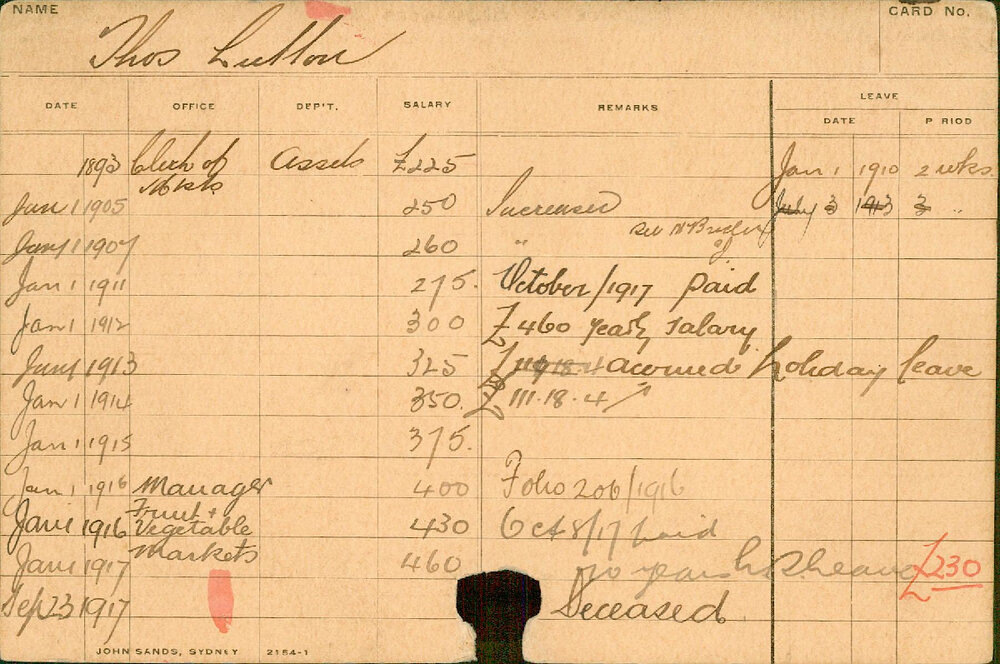 NAME
CARD No.
Thos Lutton
DATE OFFICE DEP'T. SALARY REMARKS LEAVE
DATE P RIOD
1893 Clerk of Assets £225 Jan 1 1910 2 wks.
Mkts
Jan 1 1905 250 Increased July 3 1913 3 "
Jany 1 1907 260 "
Jan 1 1911 275. October/1917 paid
Jan 1 1912 300 £460 yearly salary
Jany 1913 325 £ 111.18.4 accrued holiday leave
Jan 1 1914 350. £111.18.4
Jan 1 1915 375.
Jan 1 1916 Manager 400 Folio 206/1916
Jan 1 1916 Fruit + 430 Oct 8/17 paid
Vegetable
Jan 1 1917 Markets 460 years leave £230
Sep 23 1917 Deceased
JOHN SANDS, SYDNEY 2154-1